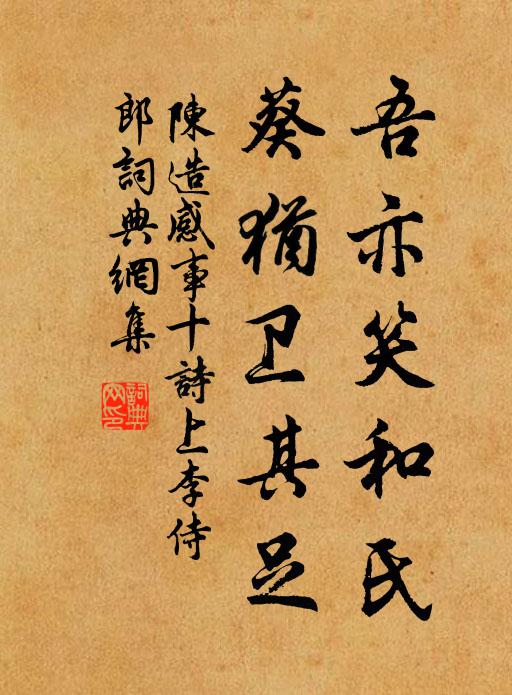 吾亦笑和氏
葵犹卫其足
陳造感事十詩上李侍
郎詞典網集
詞典网印